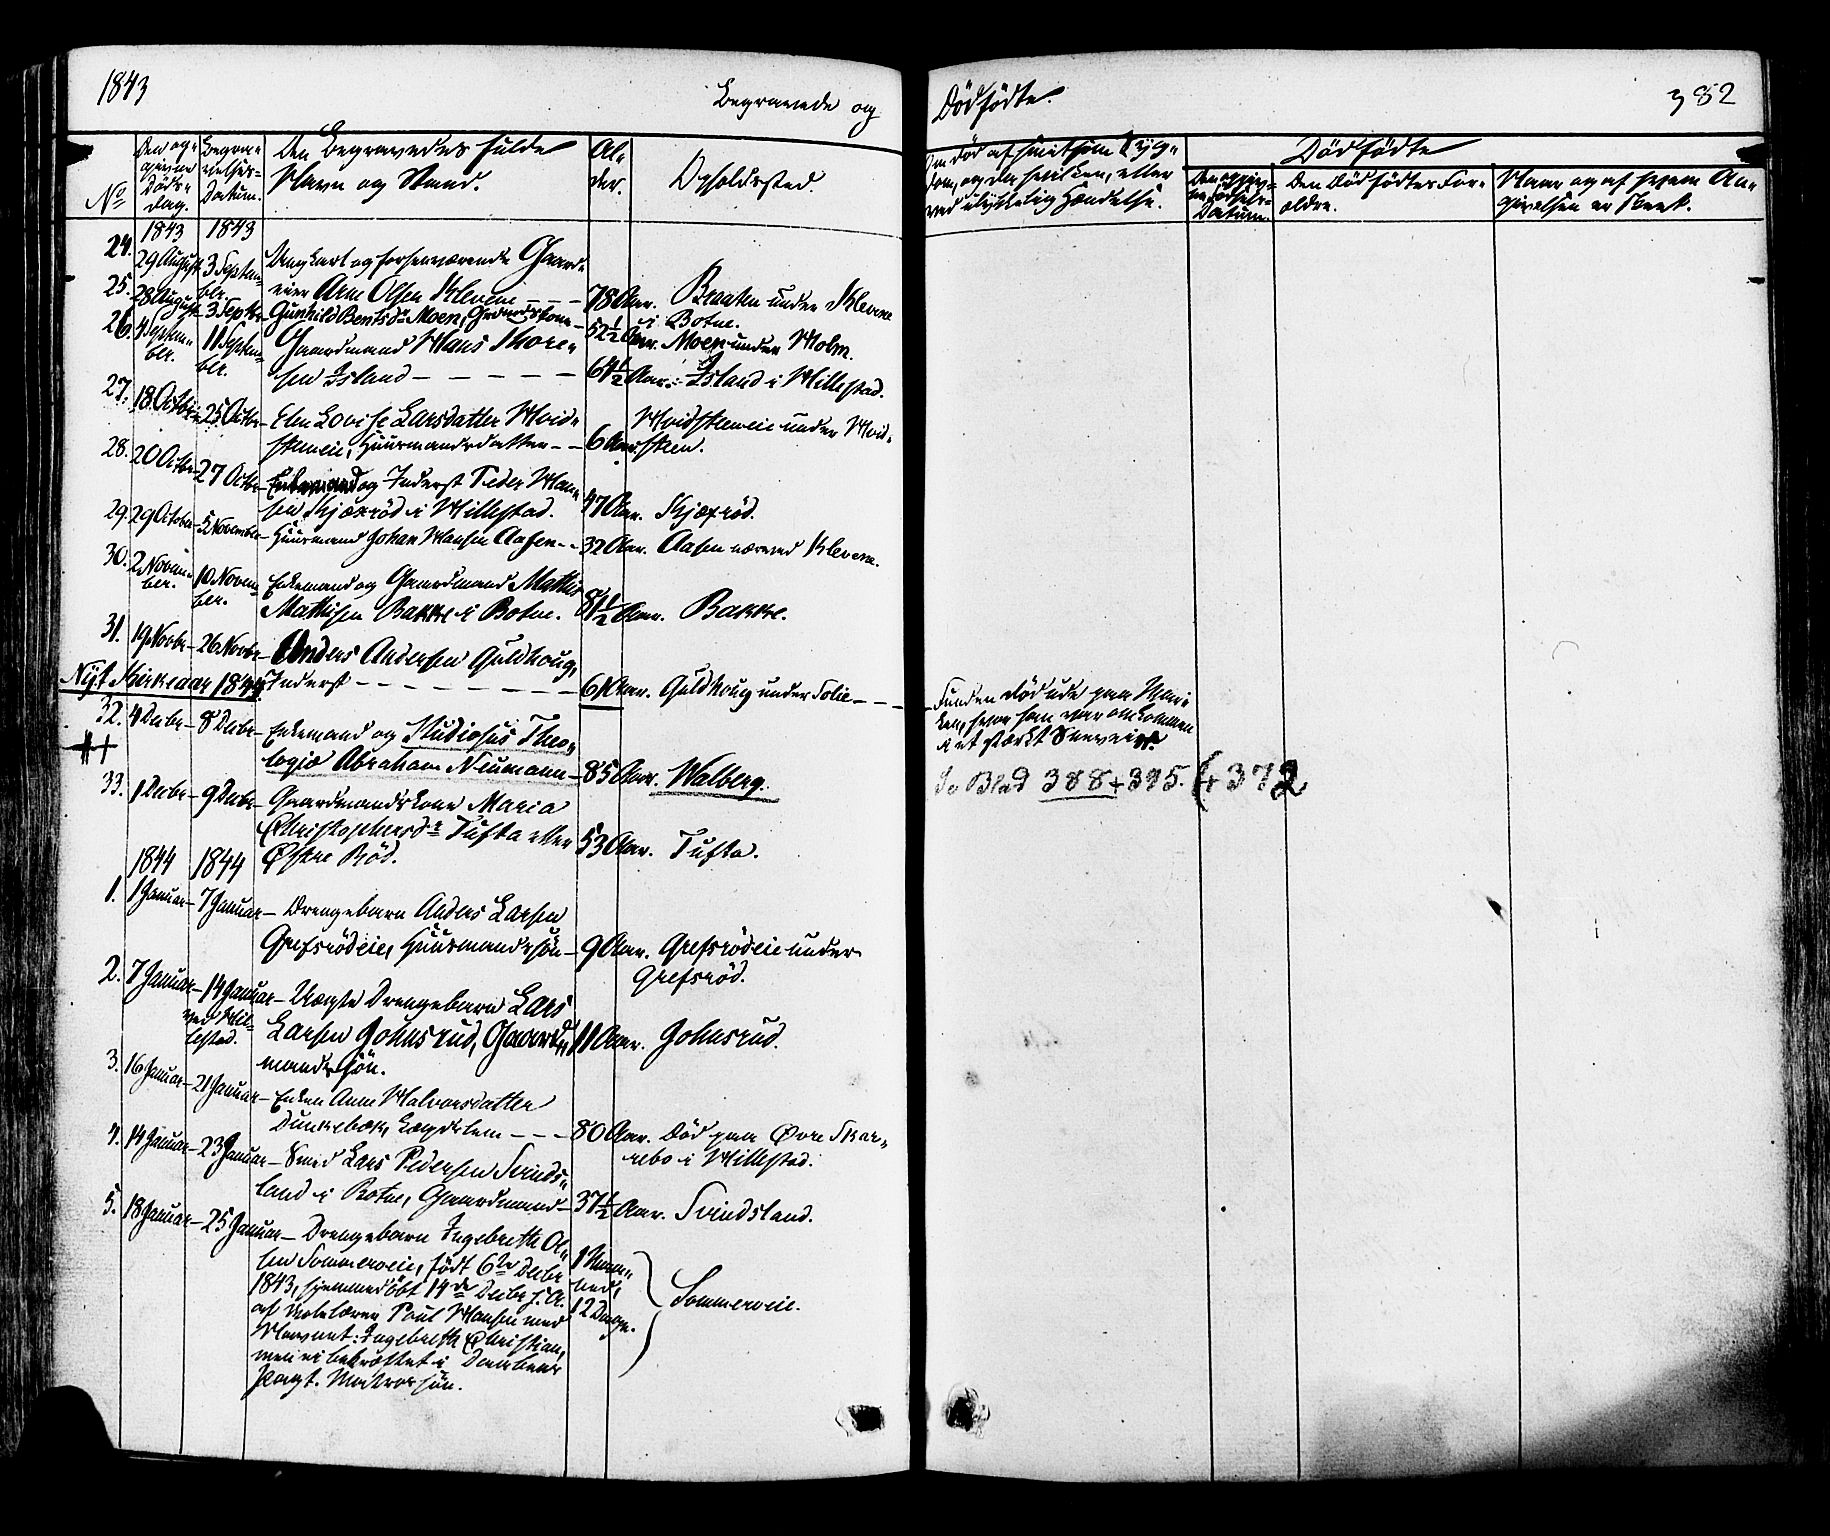 1843
Begravede og
Dödfödte.
382
No
Den op-
givne
Döds-
dag.
Begra-
velses-
Datum.
Den Begravedes fulde
Navn og Stand.
Al-
der.
Opholdssted.
Om död af smitsom Syg-
dom, og da hvilken, eller
ved ulykkelig Hændelse.
Dödfödte
Den opgiv-
ne Födsels-
Datum.
Den Dödfödtes For-
ældre.
Naar og af hvem An-
givelsen er skeet.
1843 1843
24. 29 August 3 Septem-
ber. Ungkarl og forhenværende Gaard-
eier Arne Olsen Klevene - - - 78 Aar. Braaten under Klevene
i Botne.
25. 28 August 3 Septbr Gunhild Bentsdr Moen, - 52½ Aar. Moen under Holm.
26. 4 Septem-
ber. 11 Septem-
ber. Gaardmand Hans Thore-
sen Island - - - - - 64½ Aar. Island i Hillestad.
27. 18 Octbr 25 Octbr - Elen Lovise Larsdatter Hvid-
steneie, Huusmandsdatter - - 6 Aar. Hvidsteneie under Hvid-
steen.
28. 20 Octbr 27 Octbr - Enkemand og Inderst Peder Han-
sen Skjæxröd i Hillestad. 47 Aar. Skjæxröd.
29. 29 October 5 November - Huusmand Johan Hansen Aasen - - 32 Aar. Aasen nærved Klevene.
30. 2 Novem-
ber. 10 Novem-
ber. Enkemand og Gaardmand Mathis
Mathisen Bakke i Botne. 81½ Aar. Bakke.
31. 19 Novbr - 26 Novbr - Anders Andersen Guldhoug,
Inderst - - - - - - - 61 Aar. Guldhoug under Solie - - - Funden död ude paa Mar-
ken, hvor han var omkommen
i et stærkt Sneveir.
Nyt Kirkeaar 1844
32. 4 Decbr - 8 Decbr - Enkemand og Studiosus Theo-
logiæ Abraham Neumann - 85 Aar. Walberg.
Se Blad 388 + 395. (+ 372
33. 1 Decbr - 9 Decbr - Gaardmandskone Maria
Christophersdr Tufta eller
Östre Röd. 53 Aar. Tufta.
1844 1844
1. 1 Januar - 7 Januar - Drengebarn Anders Larsen
Grefsrödeie, Huusmandssön - 9 Aar. Grefsrödeie under
Grefsröd.
2. 7 Januar - 14 Januar
ved Hil-
lestad. - Uægte Drengebarn Lars
Larsen Gohnsrud, Gaard-
mandssön. 11 Aar. Gohnsrud.
3. 16 Januar - 21 Januar - Enken Anne Halvorsdatter
Dunkebæk, Lægdslem - - - 80 Aar. Död paa Övre Skar-
rebo i Hillestad.
4. 14 Januar - 23 Januar - Smed Lars Pedersen Svinds-
land i Botne, Gaardmand - 37½ Aar. Svindsland.
5. 18 Januar - 25 Januar - Drengebarn Ingebreth Ol-
sen Sommerveie, födt 6te Decbr
1843, hjemmedöbt 14de Decbr s. A.
af Skolelærer Poul Hansen med
Navnet: Ingebreth Christian,
men ei bekræftet i Daabens
Pagt. Matrossön.
1 Maa-
ned,
12 Dage.
Sommerveie.